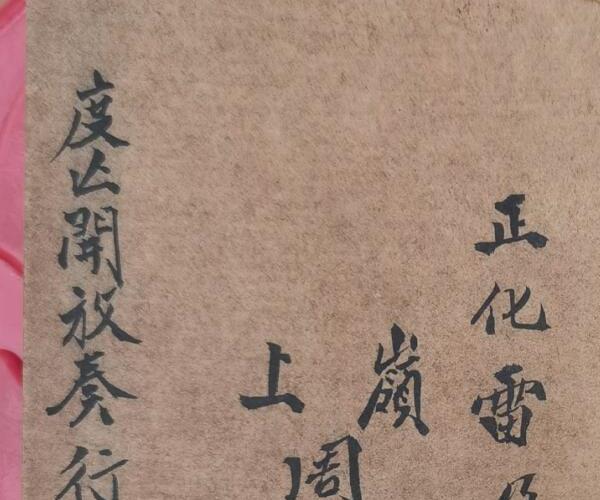 正化雷
嶺
上
周
度亡開放奏行